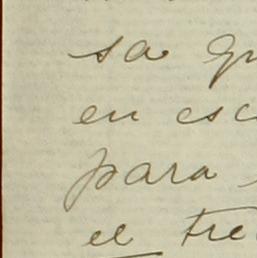 sa qu
en esc
para
el tre